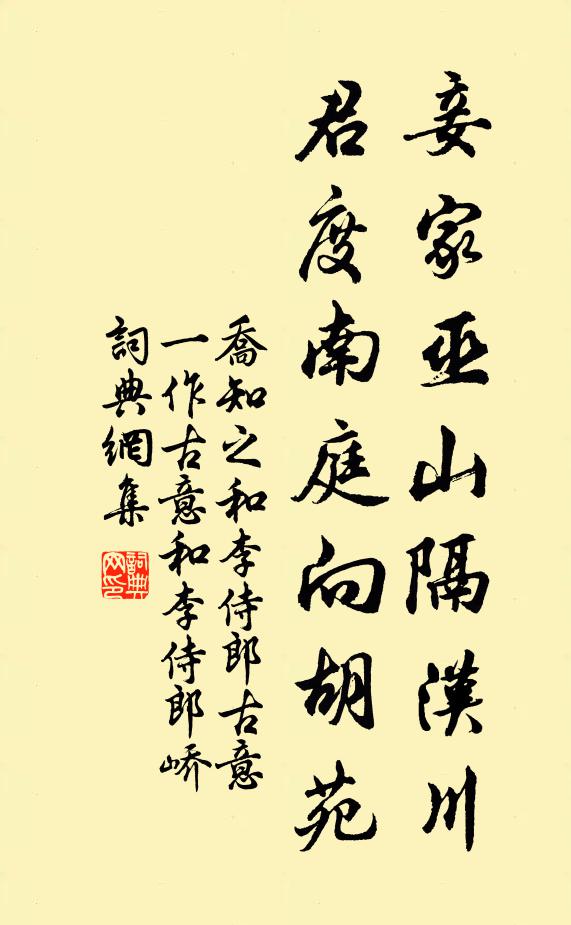 妾家巫山隔漢川
君度南庭向胡苑
喬知之和李侍郎古意
一作古意和李侍郎嶠
詞典網集
詞典网印